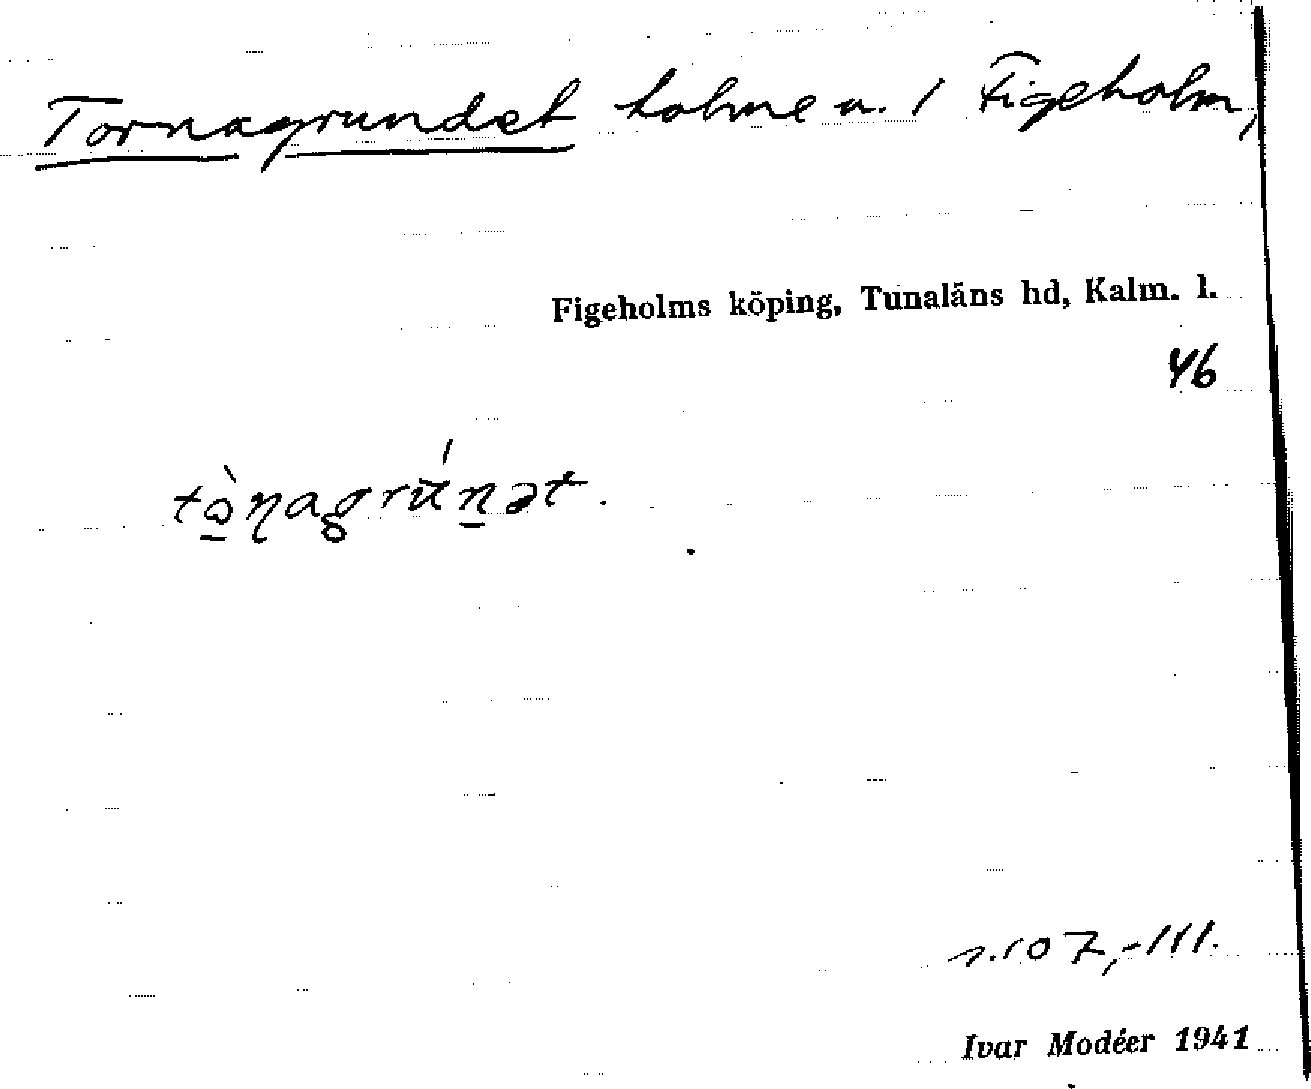 Tornagrundet holme n. / Figeholm,
Figeholms köping, Tunaläns hd, Kalm. l.
46
Ivar Modéer 1941